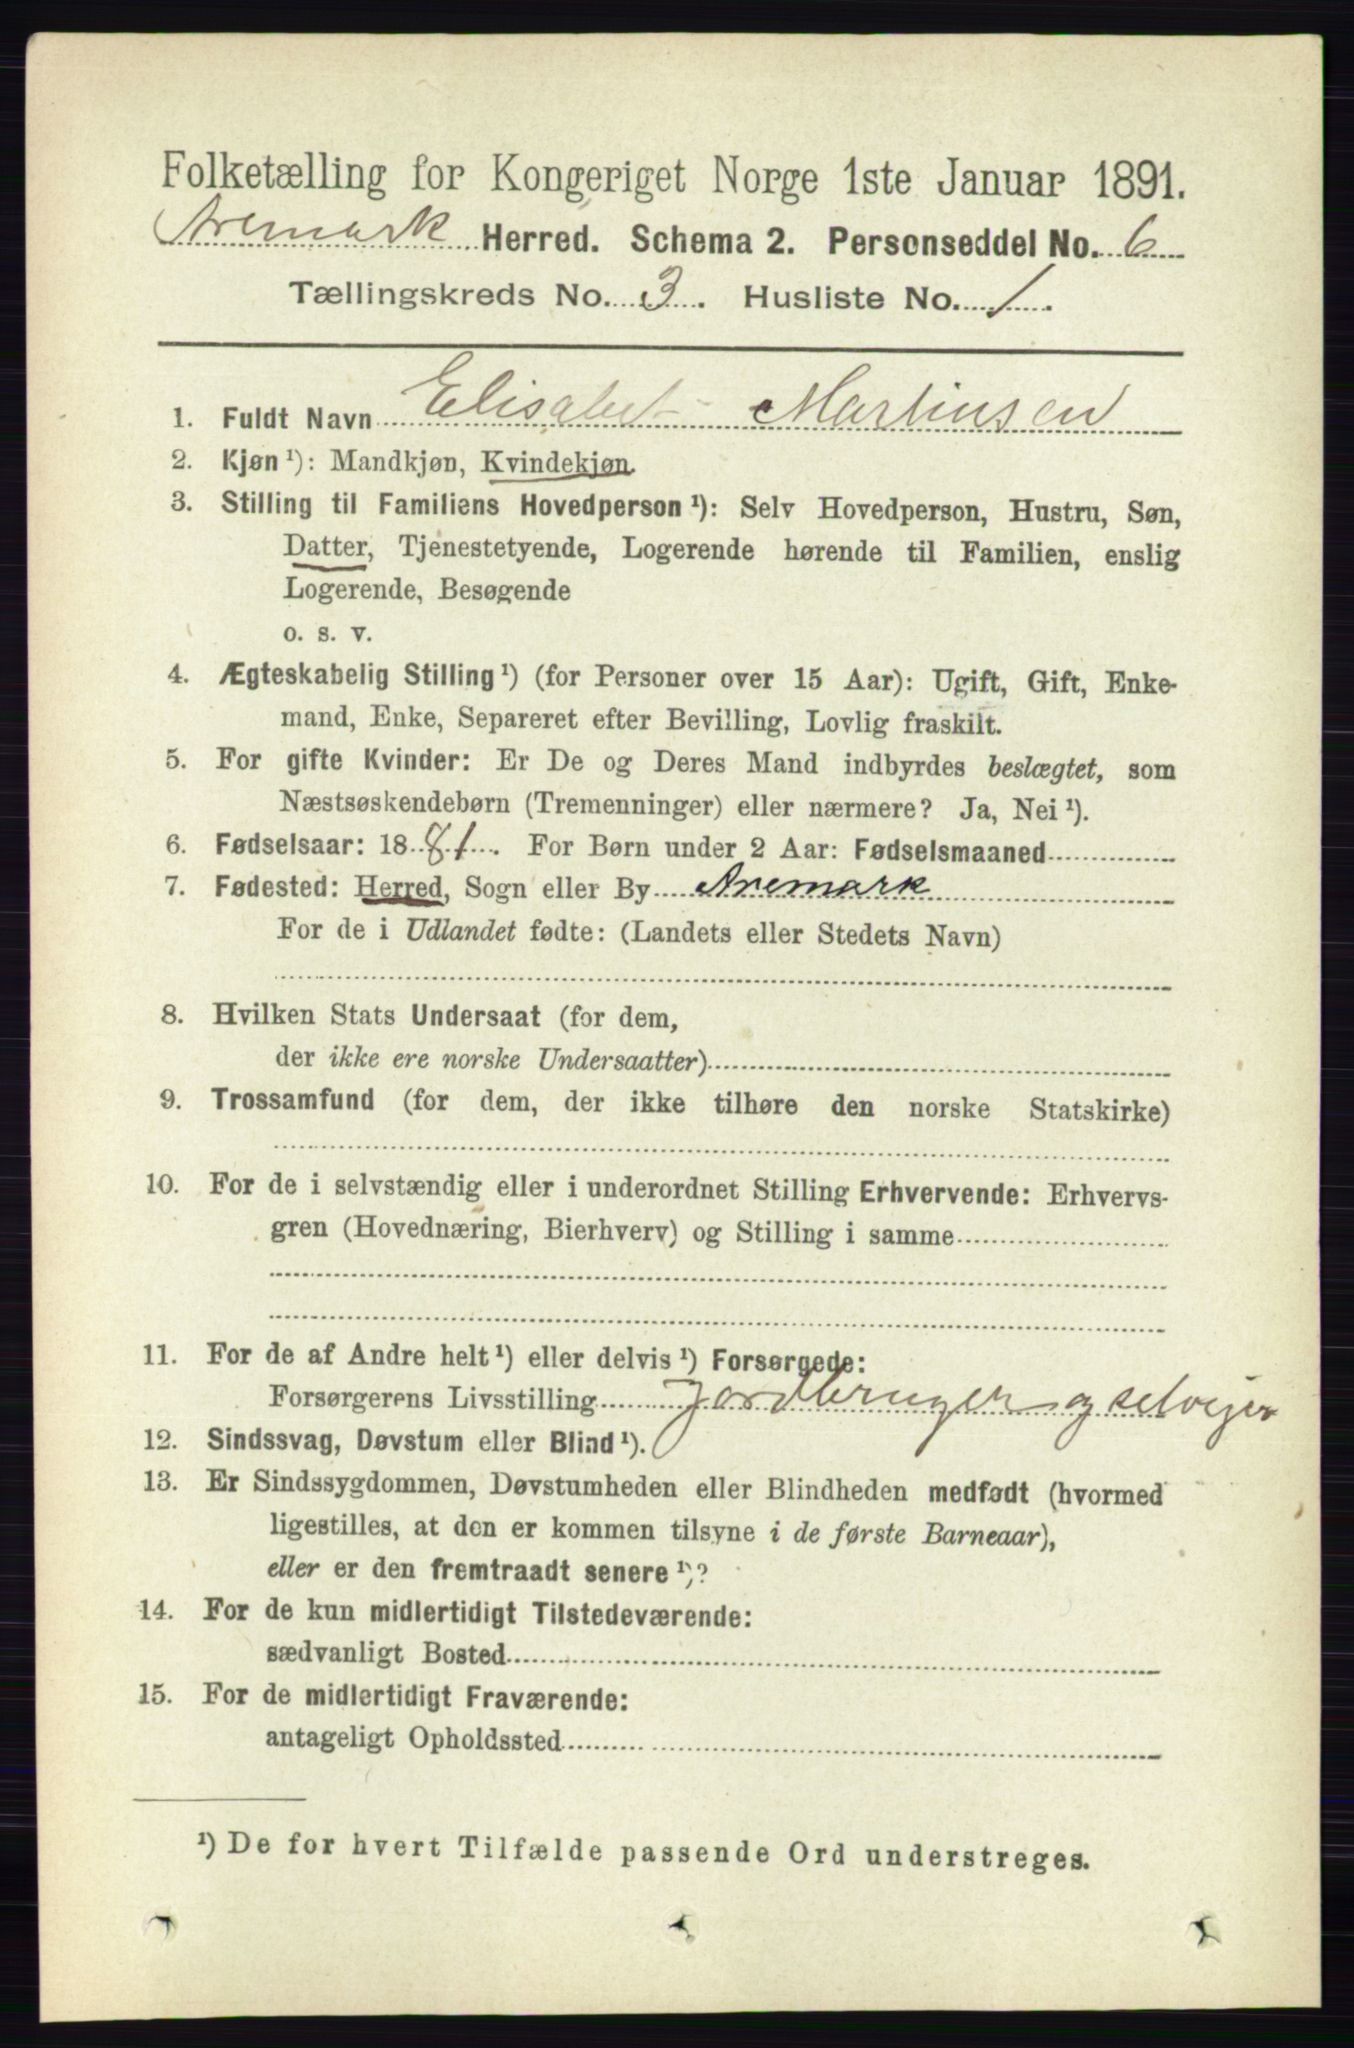 Folketælling for Kongeriget Norge 1ste Januar 1891.
Aremark Herred. Schema 2. Personseddel No. 6
Tællingskreds No. 3. Husliste No. 1.
1. Fuldt Navn Elisabet Martinsen
2. Kjøn ¹): Mandkjøn, Kvindekjøn.
3. Stilling til Familiens Hovedperson ¹): Selv Hovedperson, Hustru, Søn,
Datter, Tjenestetyende, Logerende hørende til Familien, enslig
Logerende, Besøgende
o. s. v.
4. Ægteskabelig Stilling ¹) (for Personer over 15 Aar): Ugift, Gift, Enke-
mand, Enke, Separeret efter Bevilling, Lovlig fraskilt.
5. For gifte Kvinder: Er De og Deres Mand indbyrdes beslægtet, som
Næstsøskendebørn (Tremenninger) eller nærmere? Ja, Nei ¹).
6. Fødselsaar: 1881. For Børn under 2 Aar: Fødselsmaaned
7. Fødested: Herred, Sogn eller By Aremark
For de i Udlandet fødte: (Landets eller Stedets Navn)
8. Hvilken Stats Undersaat (for dem,
der ikke ere norske Undersaatter)
9. Trossamfund (for dem, der ikke tilhøre den norske Statskirke)
10. For de i selvstændig eller i underordnet Stilling Erhvervende: Erhvervs-
gren (Hovednæring, Bierhverv) og Stilling i samme
11. For de af Andre helt ¹) eller delvis ¹) Forsørgede:
Forsørgerens Livsstilling Jordbruger og selvejer
12. Sindssvag, Døvstum eller Blind ¹).
13. Er Sindssygdommen, Døvstumheden eller Blindheden medfødt (hvormed
ligestilles, at den er kommen tilsyne i de første Barneaar),
eller er den fremtraadt senere ¹)?
14. For de kun midlertidigt Tilstedeværende:
sædvanligt Bosted
15. For de midlertidigt Fraværende:
antageligt Opholdssted
¹) De for hvert Tilfælde passende Ord understreges.